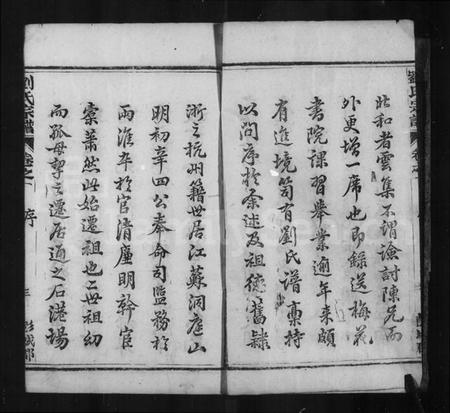 劉氏宗譜
此和者雲集不謂論討陳兄而
外更增一席也即錄送梅花
書院課習舉業逾年来頗
有進境笥有劉氏譜稟持
以問序於余述及祖德舊隸
浙之杭州籍世居江蘇洞庭山
明初辛四公奉命司監務於
兩淮卒於官清廉明幹宦
橐蕭然此始遷祖也二世祖幼
而孤母挈之遷居通之石港場
劉氏宗譜
卷之一
序
三
彭城郡